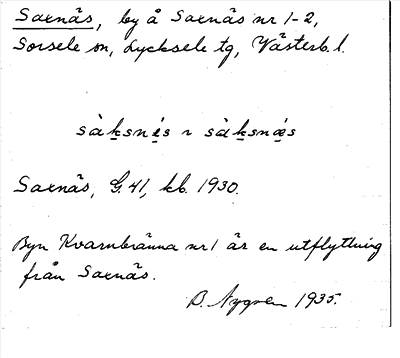 Saxnäs, by å Saxnäs nr 1-2,
Sorsele sn, Lycksele tg, Västerb. l.
sàksnés ~ sàksnæs
Saxnäs, G. 41, kb. 1930.
Byn Kvarnbränna nr 1 är en utflyttning
från Saxnäs.
B. Nygren 1935.